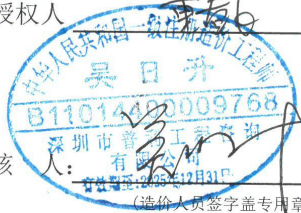 授权人
中华人民共和国一级注册造价工程师
吴日升
B11014400009768
深圳市普
工程咨询
有限公司
核 人：
有效期至：2025年12月31日
(造价人员签字盖专用章